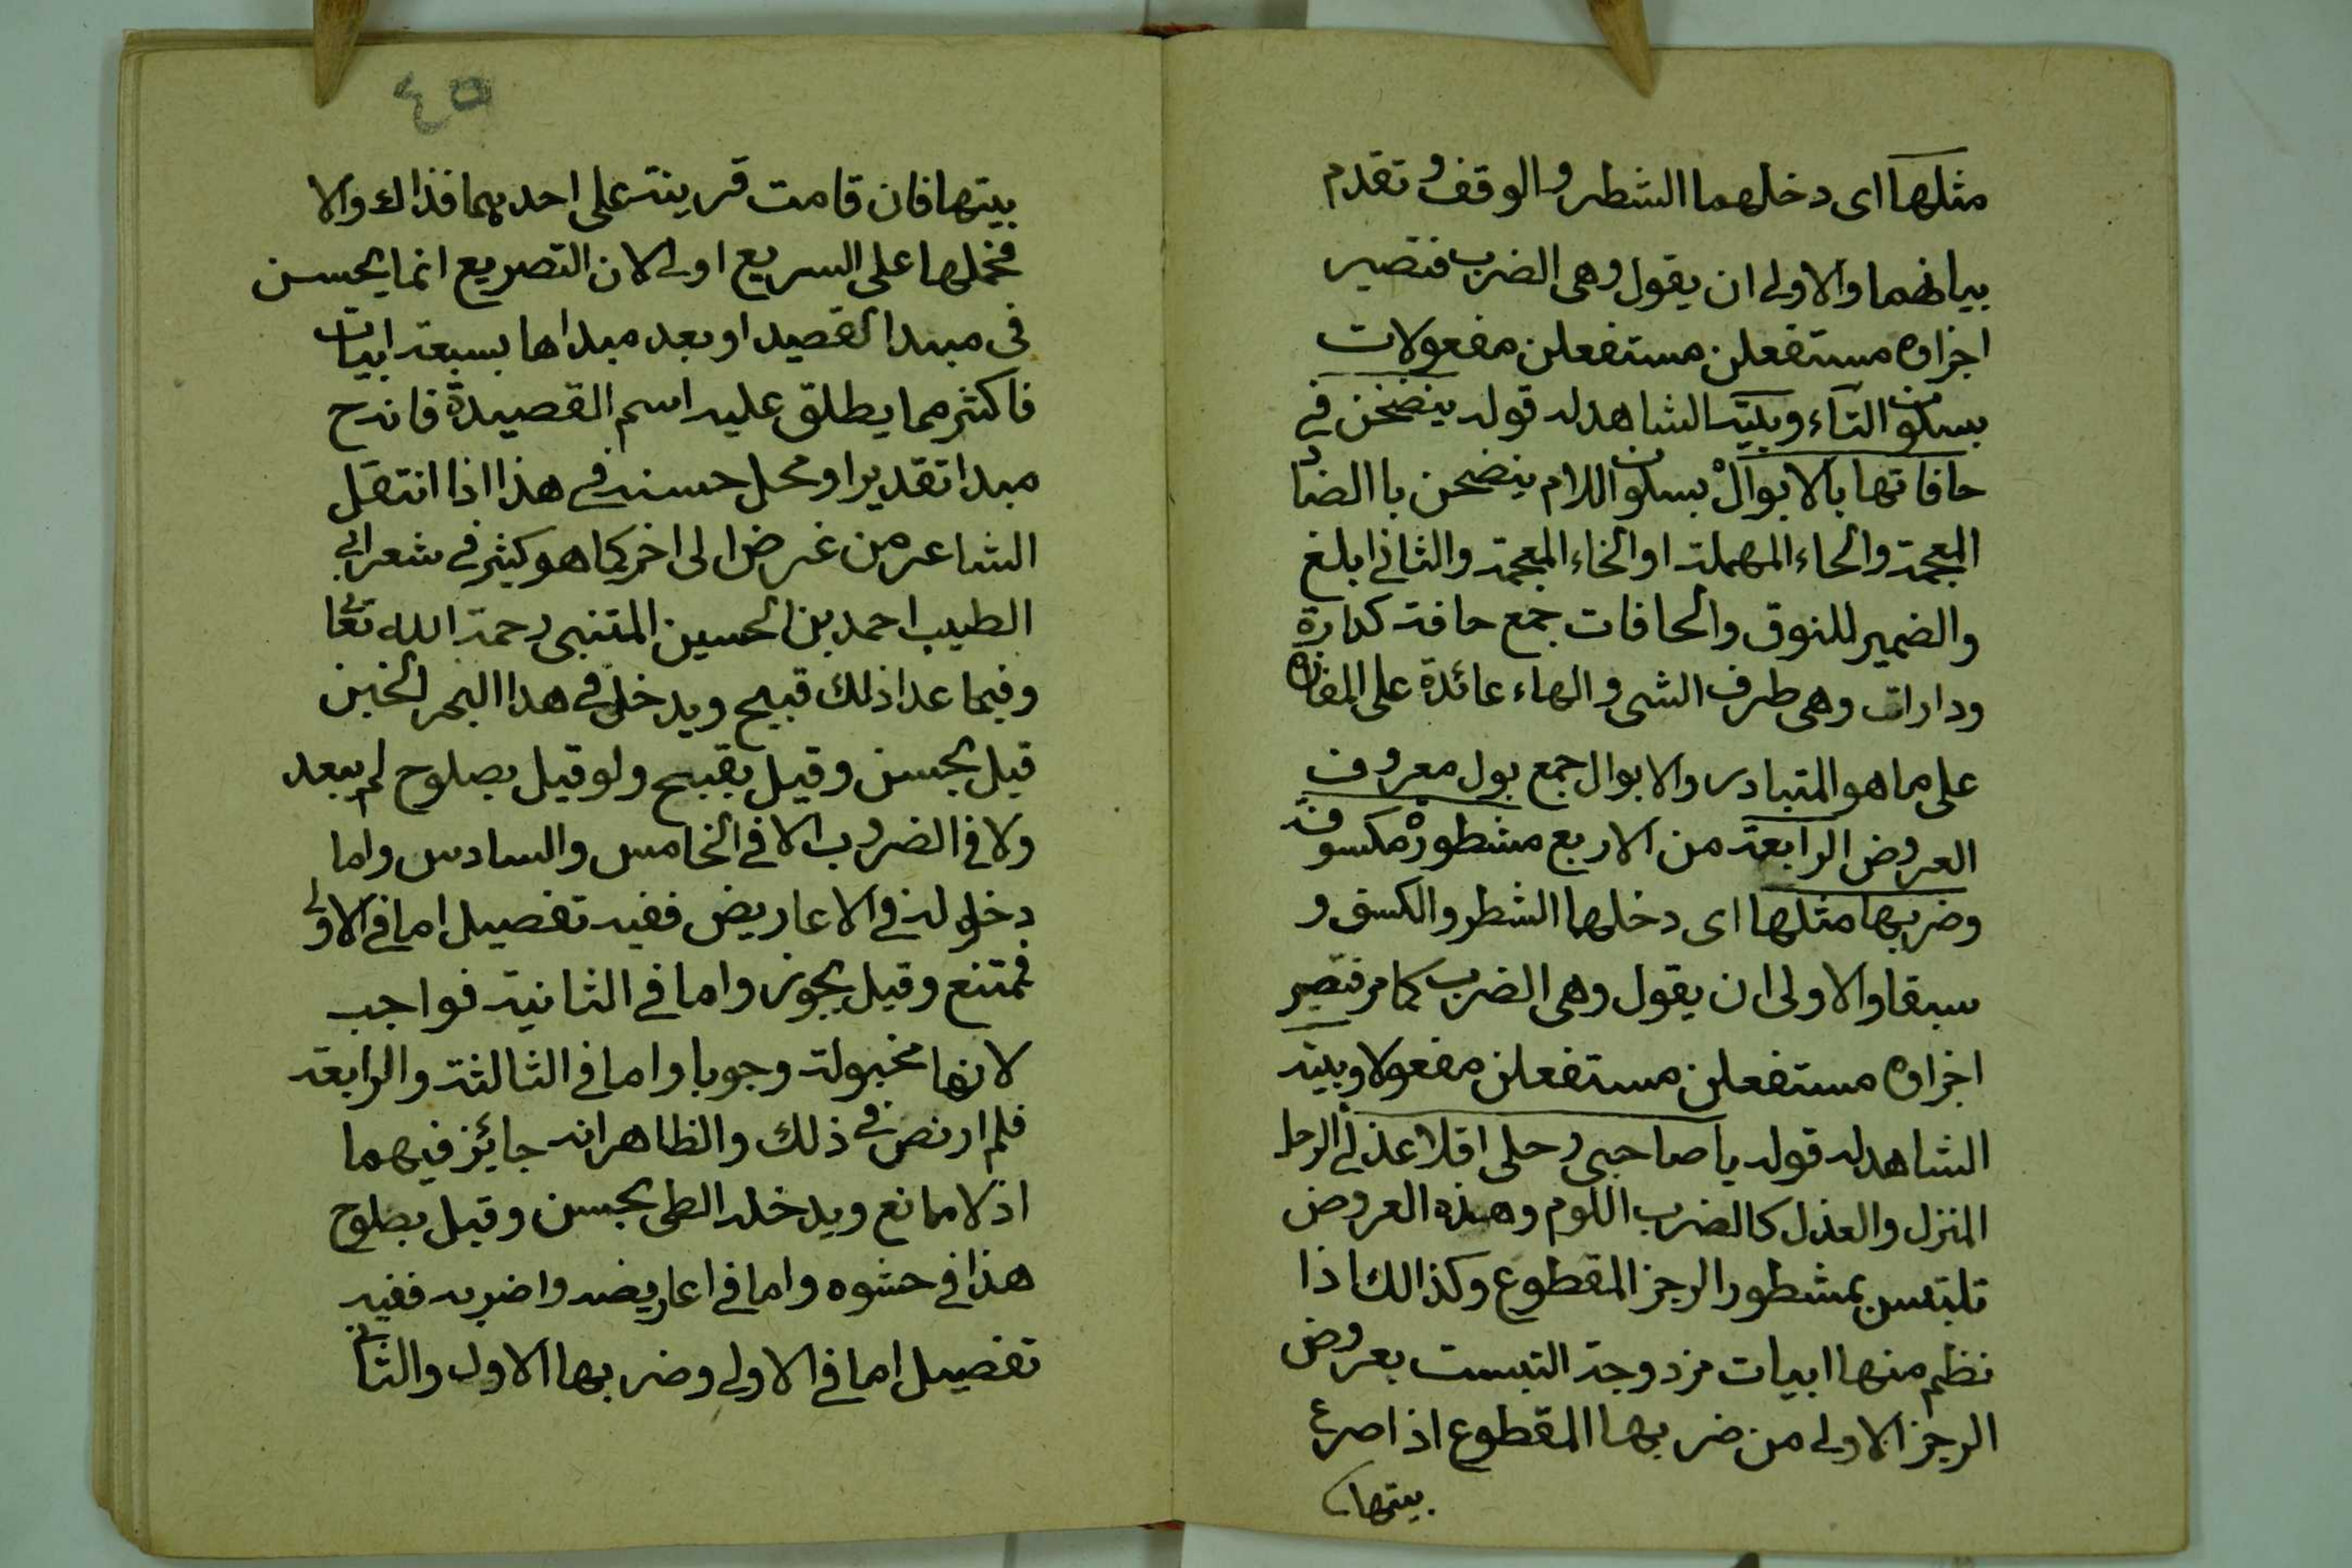 مثلها اى دخلهما الشطر والوقف وتقدم
بيانهما والاولى ان يقول وهى الضرب فتصير
اجزاوه مستفعلن مستفعلن مفعولات
بسكون التاء وبيته الشاهد له قوله ينضحن فى
حافاتها بالابوالْ بسكون اللام ينضحن با الضاد
المعجمة والحاء المهملة او الخاء المعجمة والثانى ابلغ
والضمير للنوق والحافات جمع حافة كدارة
ودارات وهى طرف الشى والهاء عائدة على المفازه
على ما هو المتبادر والابوال جمع بول معروف
العروض الرابعة من الاربع مشطورة مكسوفة
وضربها مثلها اى دخلهما الشطر والكسف و
سبقا والاولى ان يقول وهى الضرب كما مر فتصير
اجزاوه مستفعلن مستفعلن مفعولا وبيته
الشاهد له قوله يا صاحبى رحلى اقلا عذلى الرحل
المنزل والعذل كالضرب اللوم وهذه العروض
تلتبس بمشطور الرجز المقطوع وكذالك اذا
نظم منها ابيات مزدوجة التبست بعروض
الرجز الاولى من ضربها المقطوع اذا صرع
بيتها
٤٥
بيتها فان قامت قرينة على احديهما فذاك والا
فحملها على السريع اولى لان التصريع انما يحسن
فى مبدا القصيد او بعد مبداها بسبعة ابيات
فاكثر مما يطلق عليه اسم القصيدة فانه ح
مبدا تقديرا ومحل حسنه فى هذا اذا انتقل
الشاعر من غرض الى اخر كما هو كثير فى شعر ابى
الطيب احمد بن الحسين المتنبى رحمة الله تعا
وفيما عدا ذلك قبيح ويدخل فى هدا البحر الخبن
قيل بحسن وقيل بقبح ولو قيل بصلوح لم يبعد
ولا فى الضروب الا فى الخامس والسادس واما
دخوله فى الاعاريض ففيه تفصيل اما فى الاولى
فمتنع وقيل يجوز واما فى الثانية فواجب
لانها مخبولة وجوبا واما فى الثالثة والرابعة
فلم ار نص فى ذلك والظاهر انه جائز فيهما
اذ لا مانع ويدخله الطى بحسن وقيل بصلوح
هذا فى حشوه واما فى اعاريضه واضربه ففيه
تفصيل اما فى الاولى وضربها الاول والثانى